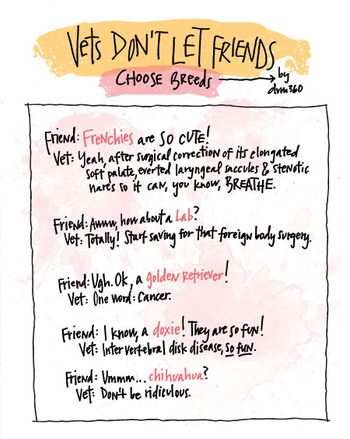 Vets DON'T LET FRIENDS
CHOOSE BREEDS
by
dvm360
Friend: Frenchies are SO CUTE!
Vet: Yeah, after surgical correction of its elongated
soft palate, everted laryngeal saccules & stenotic
nares so it can, you know, BREATHE.
Friend: Awww, how about a Lab?
Vet: Totally! Start saving for that foreign body surgery.
Friend: Ugh. Ok, a golden retriever!
Vet: One word: Cancer.
Friend: I know, a doxie! They are so fun!
Vet: Intervertebral disk disease, so fun.
Friend: Ummm... chihuahua?
Vet: Don't be ridiculous.